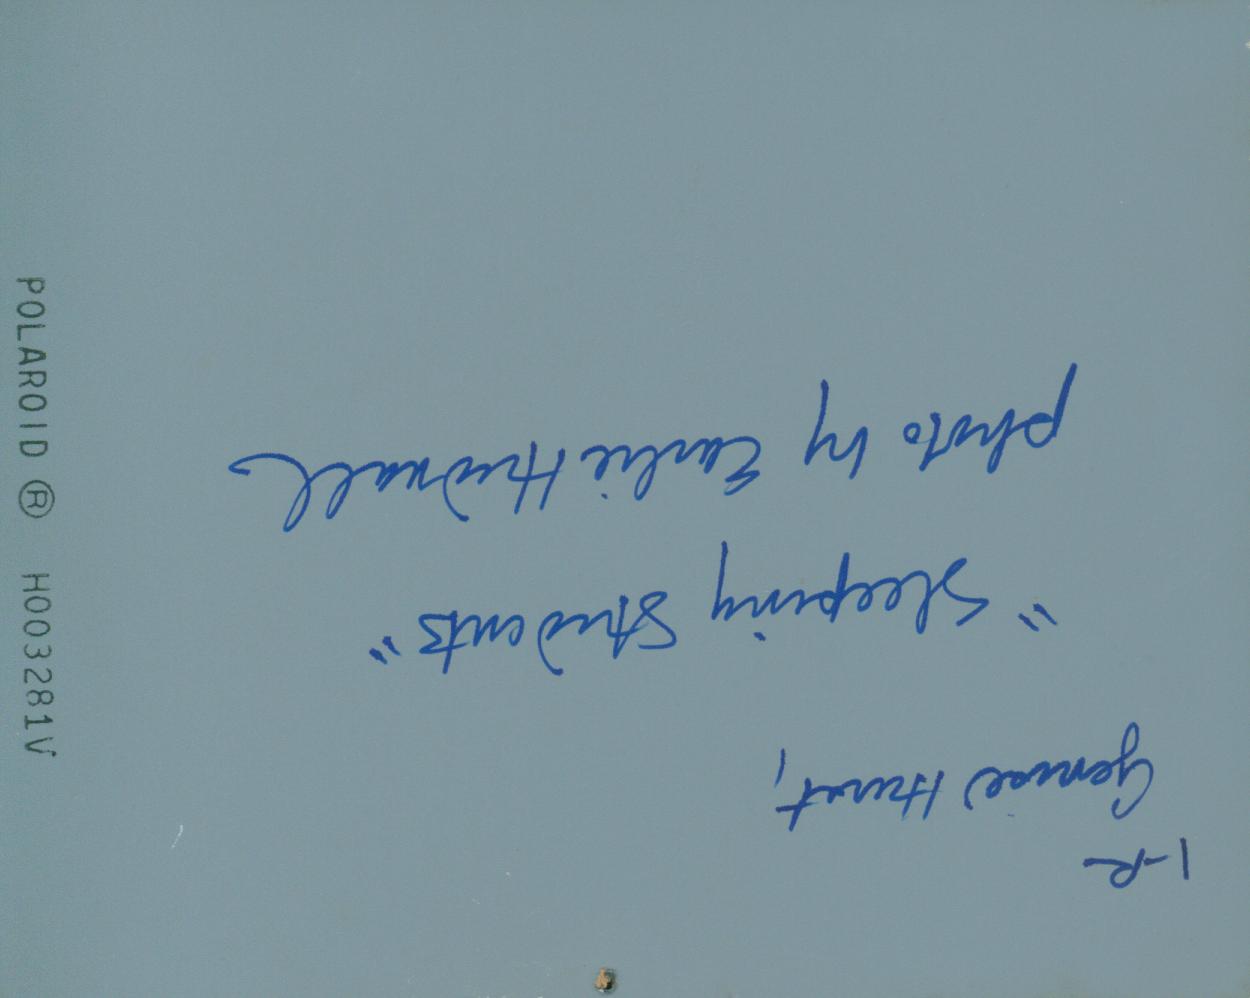 l-R
Genice Hurst,
"Sleeping Students"
photo by Earlie Hudnall
POLAROID ® H003281V